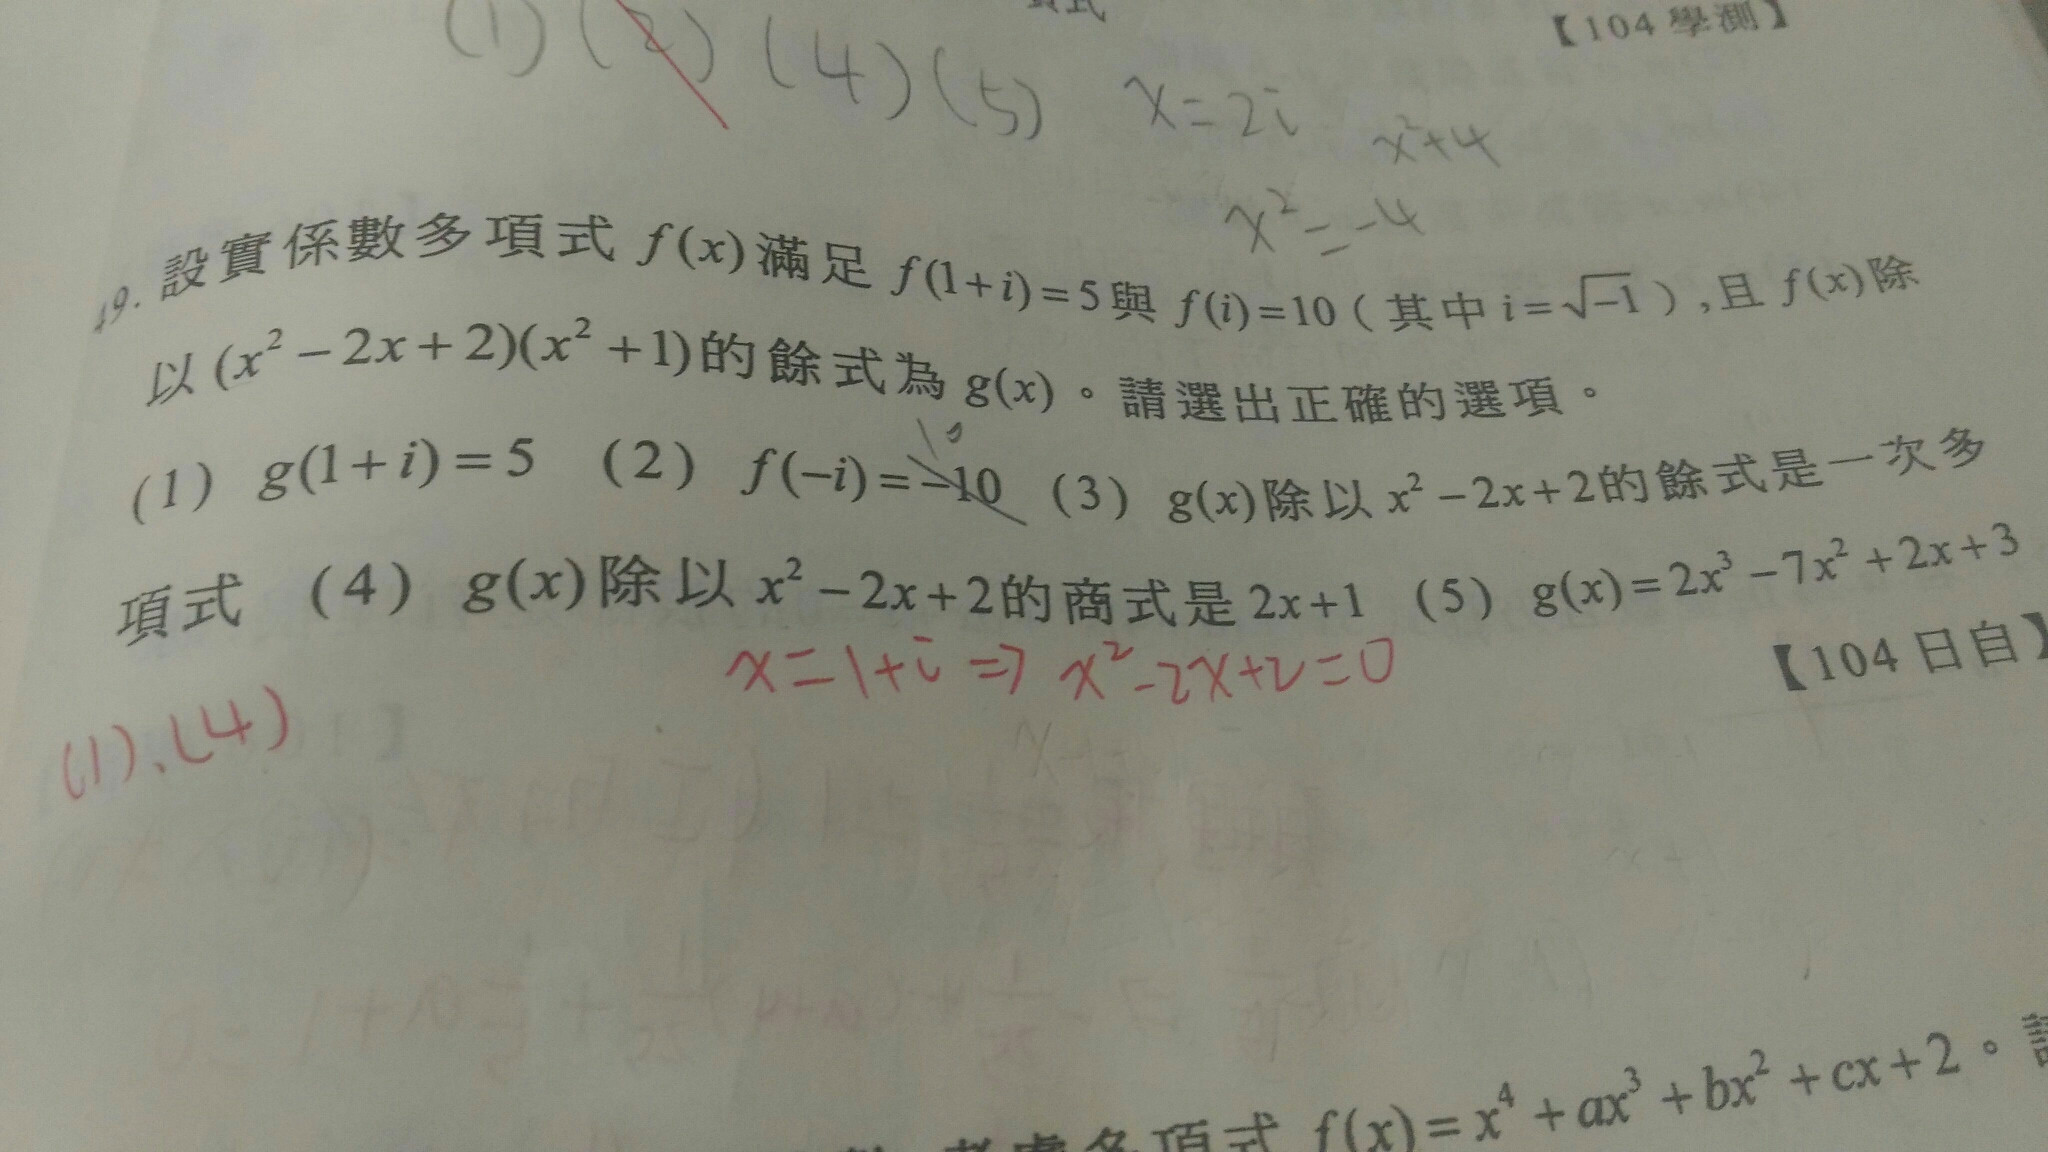 【104學測】
(1)(2)(4)(5)
x=2i
x²+4
x²=-4
49.設實係數多項式 f(x)滿足 f(1+i)=5與 f(i)=10(其中 i=√-1),且 f(x)除
以(x²-2x+2)(x²+1)的餘式為 g(x)。請選出正確的選項。
10
(1) g(1+i)=5 (2) f(-i)=-10 (3) g(x)除以 x²-2x+2的餘式是一次多
項式 (4) g(x)除以 x²-2x+2的商式是2x+1 (5) g(x)=2x³-7x²+2x+3
【104日自】
x=1+i⇒x²-2x+2=0
(1)、(4)
多項式 f(x)=x⁴+ax³+bx²+cx+2。